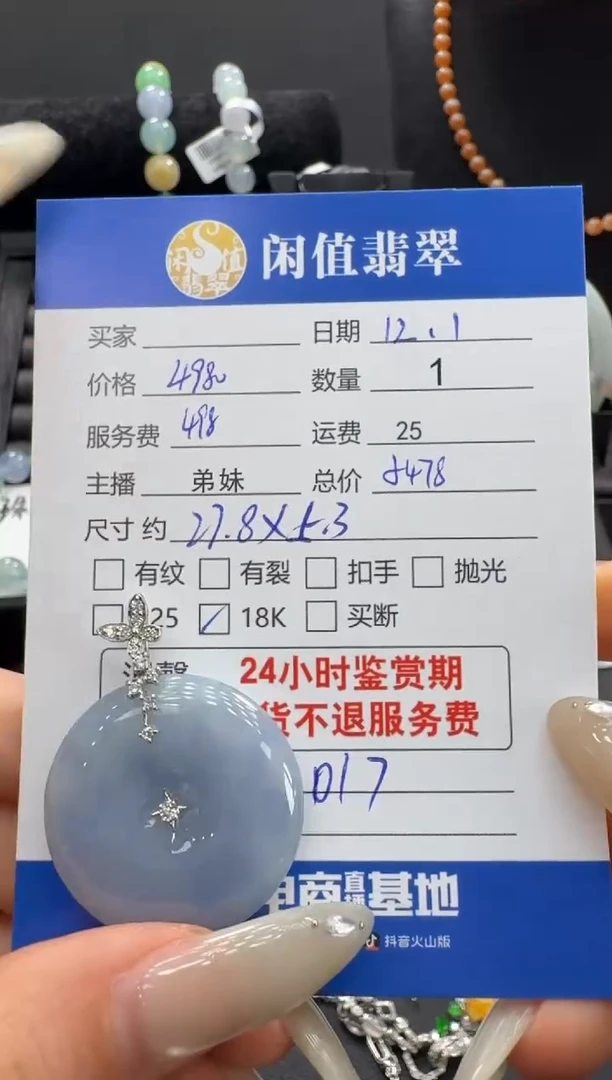 闲值翡翠
闲值翡翠
买家 日期 12.1
价格 4980 数量 1
服务费 498 运费 25
主播 弟妹 总价 5478
尺寸 约 27.8X5.3
有纹 有裂 扣手 抛光
25 18K 买断
24小时鉴赏期
货不退服务费
017
电商直播基地
抖音火山版